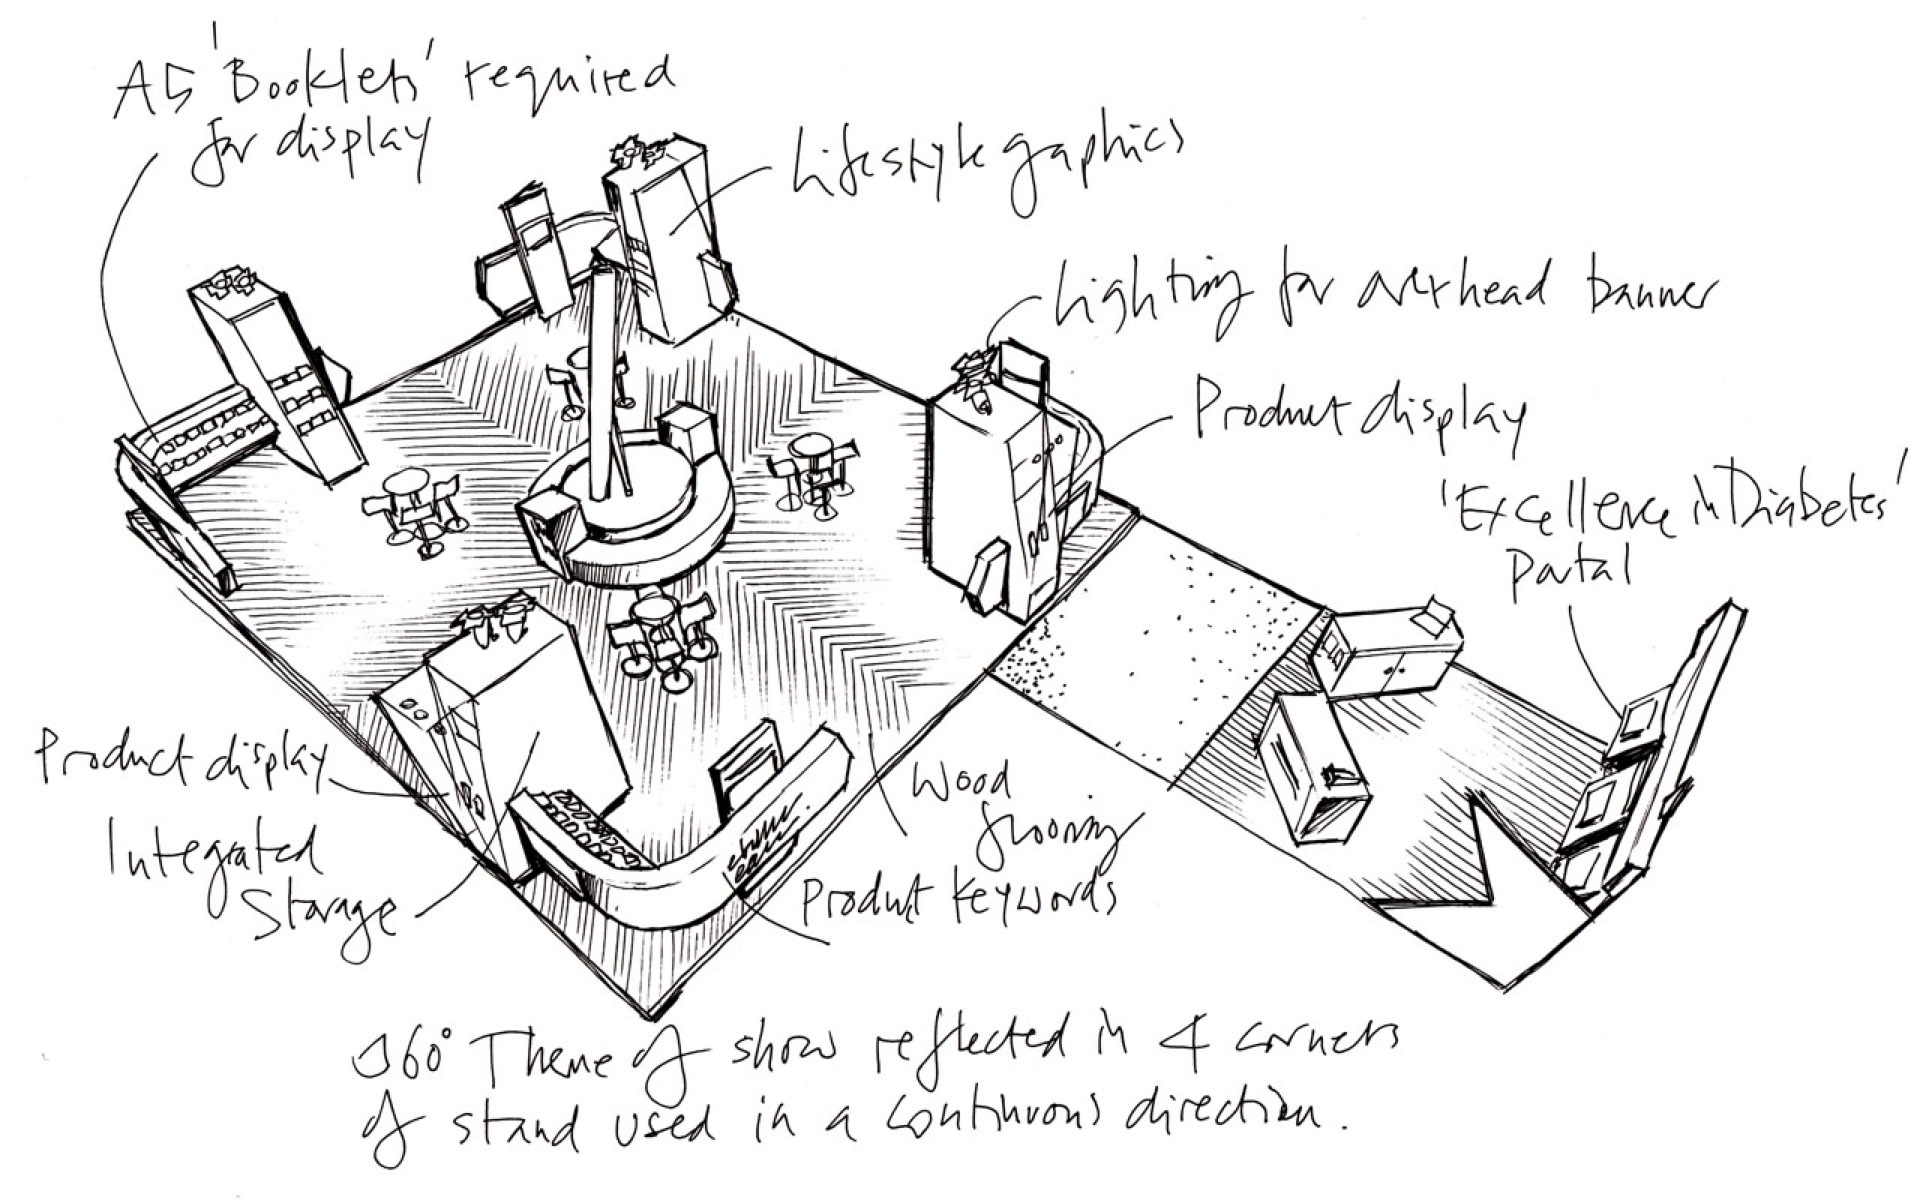 A5 'Booklets' required
for display
Lifestyle graphics
Lighting for overhead banner
Product display
'Excellence in Diabetes'
Portal
Product display
Integrated
Storage
Wood
flooring
Product Keywords
360° Theme of show reflected in 4 corners
of stand used in a continuous direction.